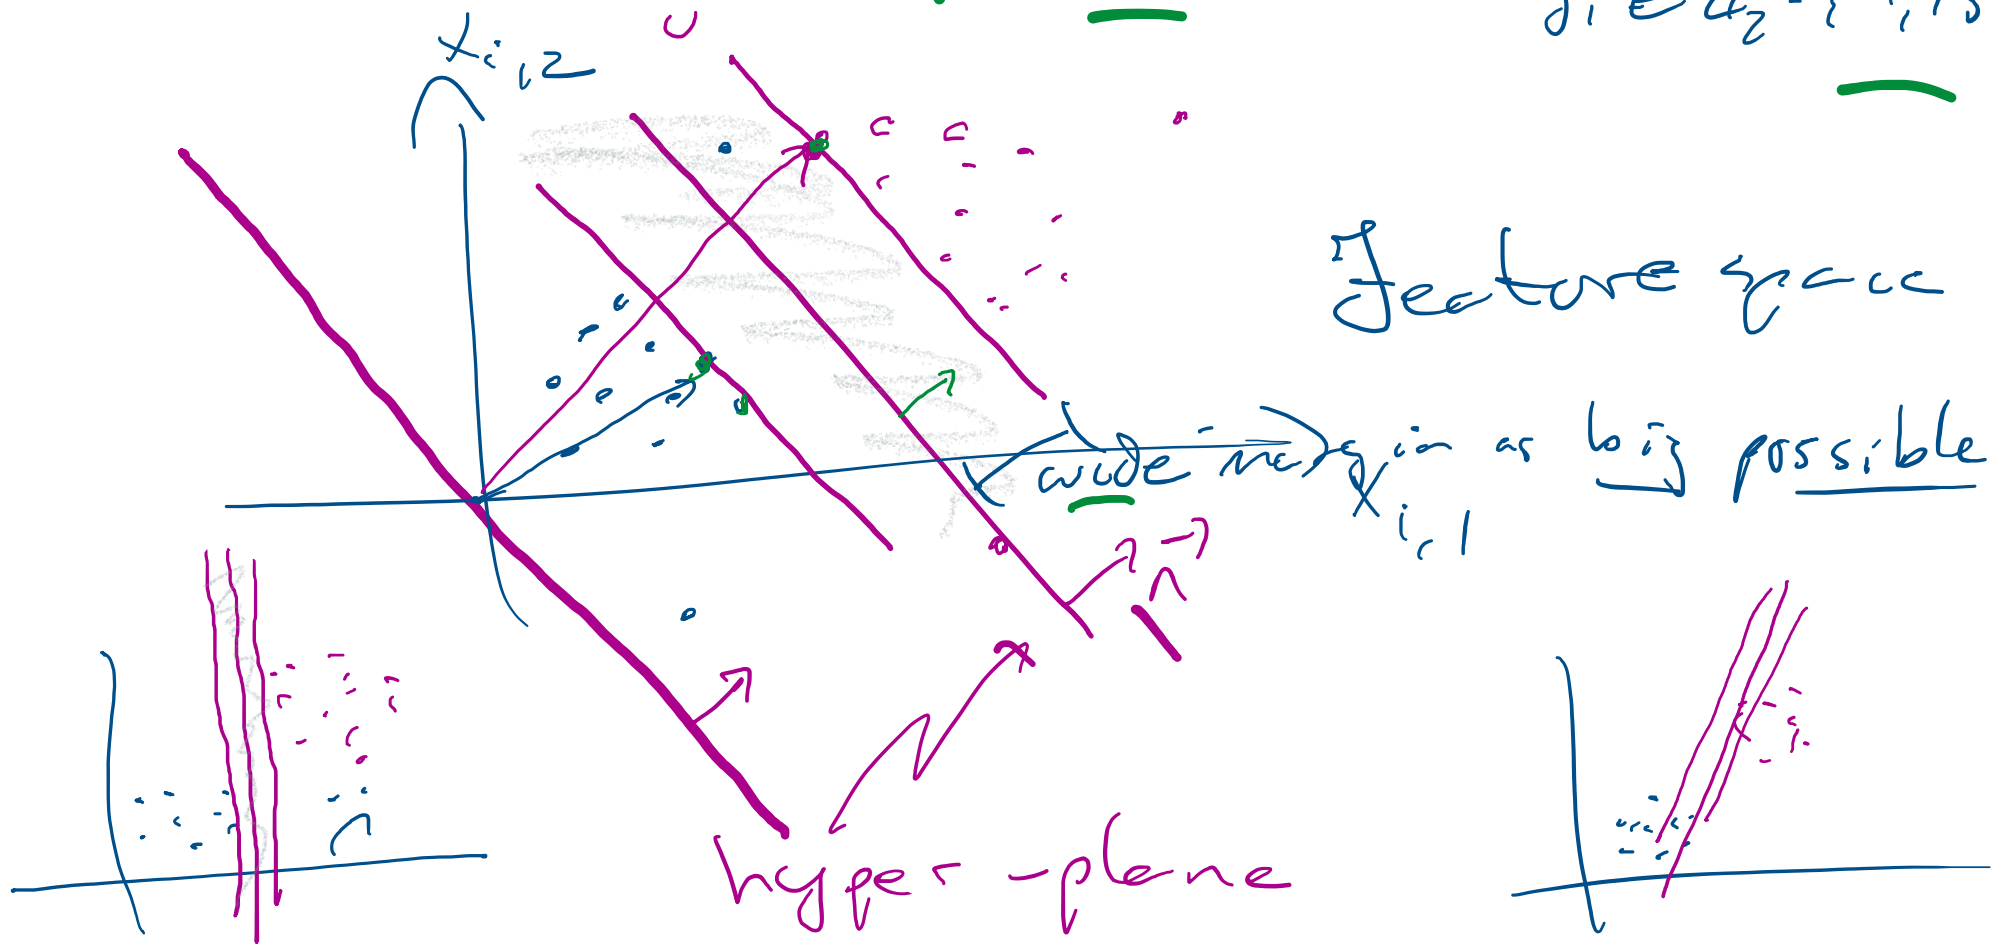 x_{i,2}
Feature space
wide margin as big possible
x_{i,1}
n
hyper-plane